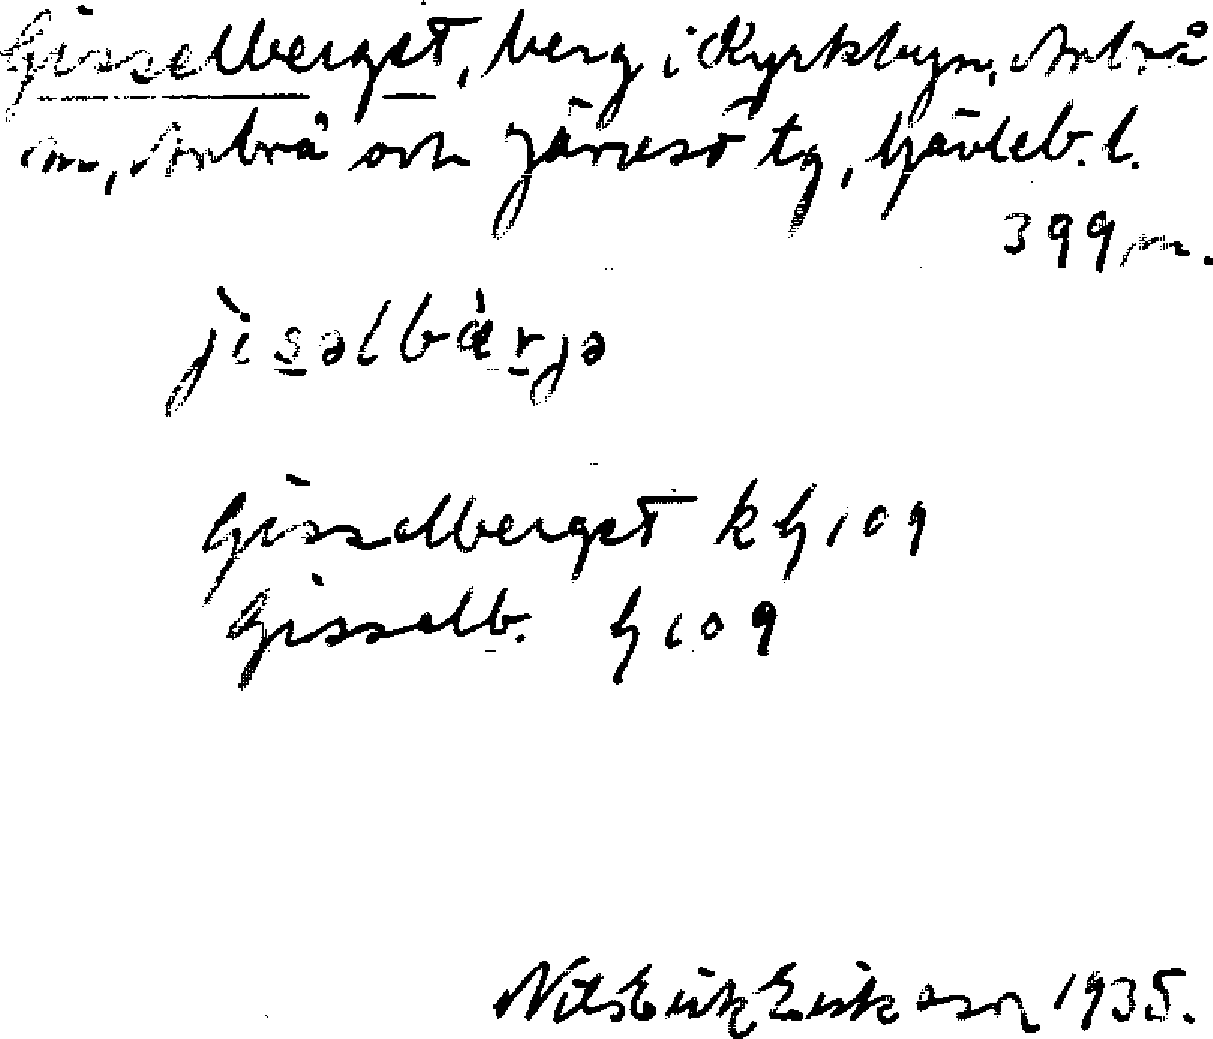 Gisselberget, berg i Kyrkbyn, Arbrå
sn, Arbrå och Järvsö tg, Gävleb. l.
399 m.
jisəlbàrjə
Gisselberget k G 109
Gisselb. G 109
Nils Erik Eriksson 1935.